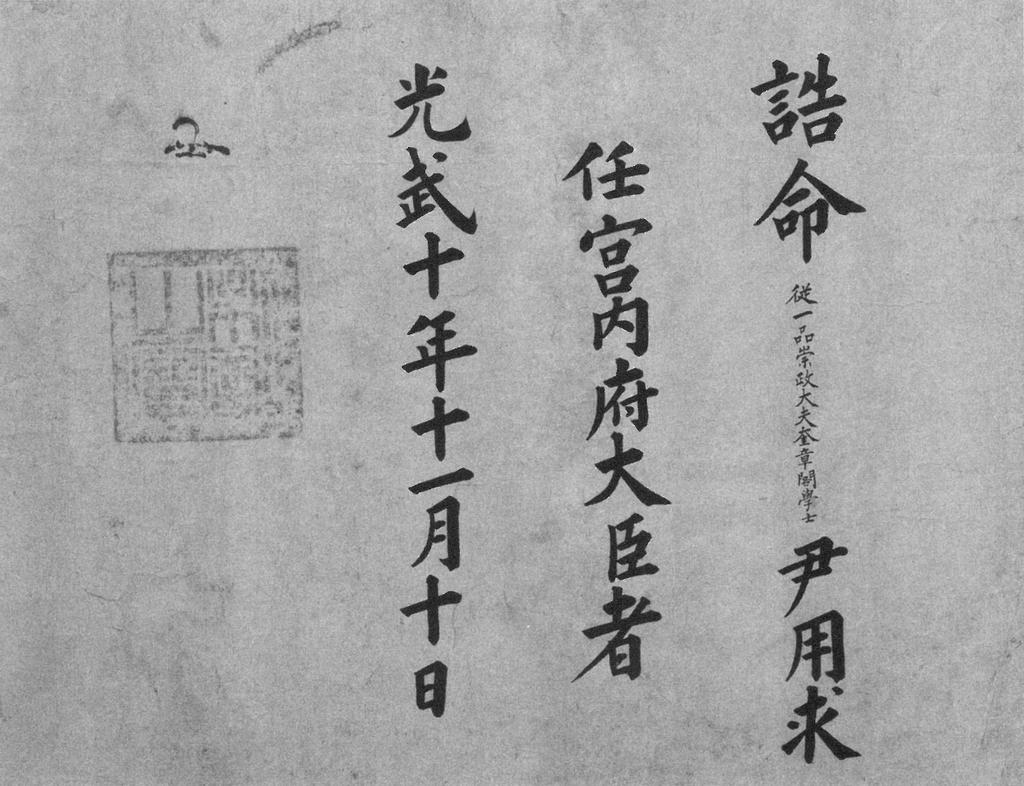 誥命 從一品崇政大夫奎章閣學士 尹用求
任宮內府大臣者
光武十年十一月十日